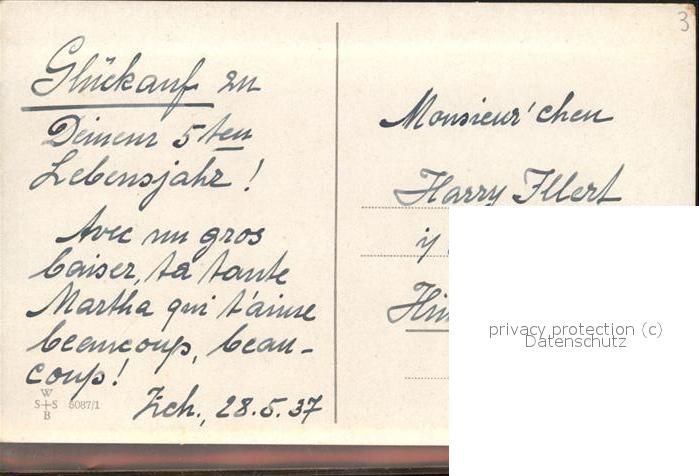 3
Glückauf zu
Deinem 5ten
Lebensjahr !
Avec un gros
baiser, ta tante
Martha qui t'aime
beaucoup, beau-
coup!
Zch., 28.5.37
W
S+S 5087/1
B
Monsieur'chen
Harry Illert
privacy protection (c)
Datenschutz